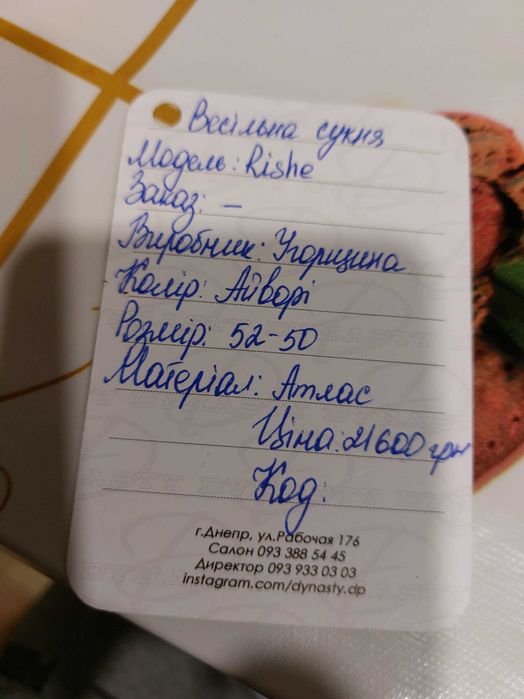 Весільна сукня
Модель: Rishe
Заказ: —
Виробник: Угорщина
Колір: Айворі
Розмір: 52-50
Матеріал: Атлас
Ціна: 21600 грн
Код:
г.Днепр, ул.Рабочая 176
Салон 093 388 54 45
Директор 093 933 03 03
instagram.com/dynasty.dp